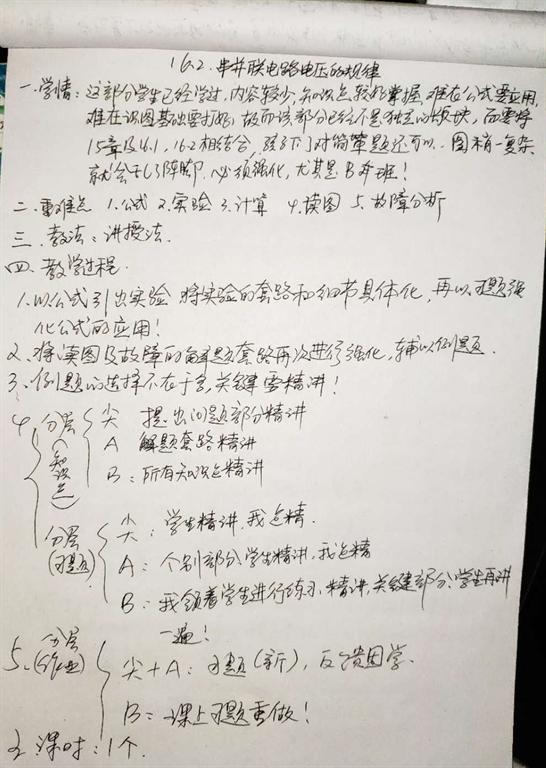 16.2. 串并联电路电压的规律
一.学情：这部分学生已经学过，内容较少，知识点较好掌握，难在公式要应用，
难在识图基础要打好；故而该部分已经不是独立的版块，而要将
15章及16.1，16.2相结合，孩子们对简单题还可以，图稍一复杂
就会乱了阵脚，必须强化，尤其是B班！
二.重难点 1.公式 2.实验 3.计算 4.读图 5.故障分析
三.教法：讲授法.
四.教学过程.
1.以公式引出实验，将实验的套路和细节具体化，再以习题强
化公式的应用！
2.将读图及故障的解题套路再次进行强化，辅以例题.
3.例题的选择不在于多，关键要精讲！
4.分层(知识点) 尖 提出问题部分精讲
A 解题套路精讲
B：所有知识点精讲
分层(习题) 尖：学生精讲，我点精.
A：个别部分学生精讲，我点精
B：我领着学生进行练习，精讲，关键部分学生再讲
一遍！
5.分层(作业) 尖+A：习题(新)，反馈困学.
B：课上习题重做！
课时：1个.